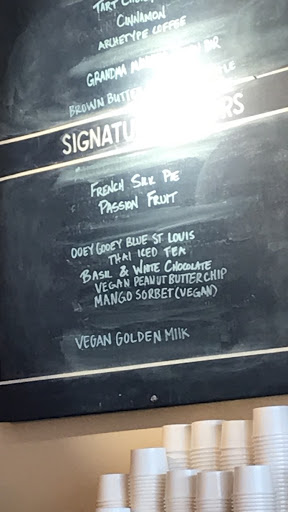 TART
CINNAMON
ARCHETYPE COFFEE
GRANDMA BAR
BROWN BUTTER
FRENCH SILK PIE
PASSION FRUIT
OOEY GOOEY BLUE ST LOUIS
THAI ICED TEA
BASIL & WHITE CHOCOLATE
VEGAN PEANUT BUTTER CHIP
MANGO SORBET (VEGAN)
VEGAN GOLDEN MILK